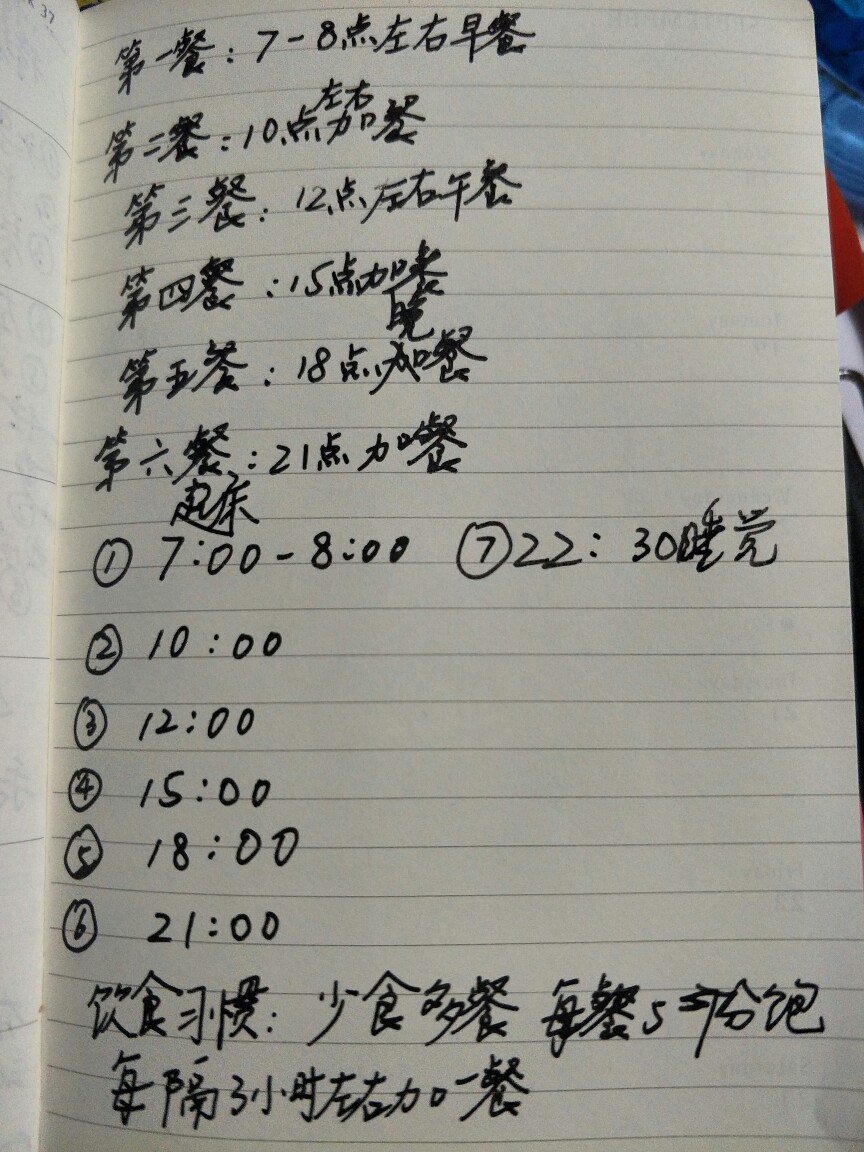 第一餐：7-8点左右早餐
左右
第二餐：10点加餐
第三餐：12点左右午餐
第四餐：15点加餐
晚
第五餐：18点加餐
第六餐：21点加餐
起床
① 7:00-8:00 ⑦22：30睡觉
② 10:00
③ 12:00
④ 15:00
⑤ 18:00
⑥ 21:00
饮食习惯：少食多餐 每餐5分饱
每隔3小时左右加一餐